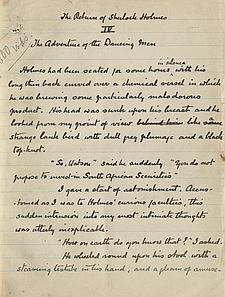 The Return of Sherlock Holmes
IV
The Adventure of the Dancing Men
in silence
Holmes had been seated for some hours, with his
long thin back curved over a chemical vessel in which
he was brewing some particularly malodorous
product. His head was sunk upon his breast and he
looked from my point of view like some
strange lank bird with dull grey plumage and a black
top-knot.
"So, Watson" said he suddenly "You do not
propose to invest in South African Securities"
I gave a start of astonishment. Accus-
tomed as I was to Holmes' curious faculties, this
sudden intrusion into my most intimate thoughts
was utterly inexplicable.
"How on earth do you know that?" I asked.
He wheeled round upon his stool with a
steaming testtube in his hand, and a gleam of amuse-